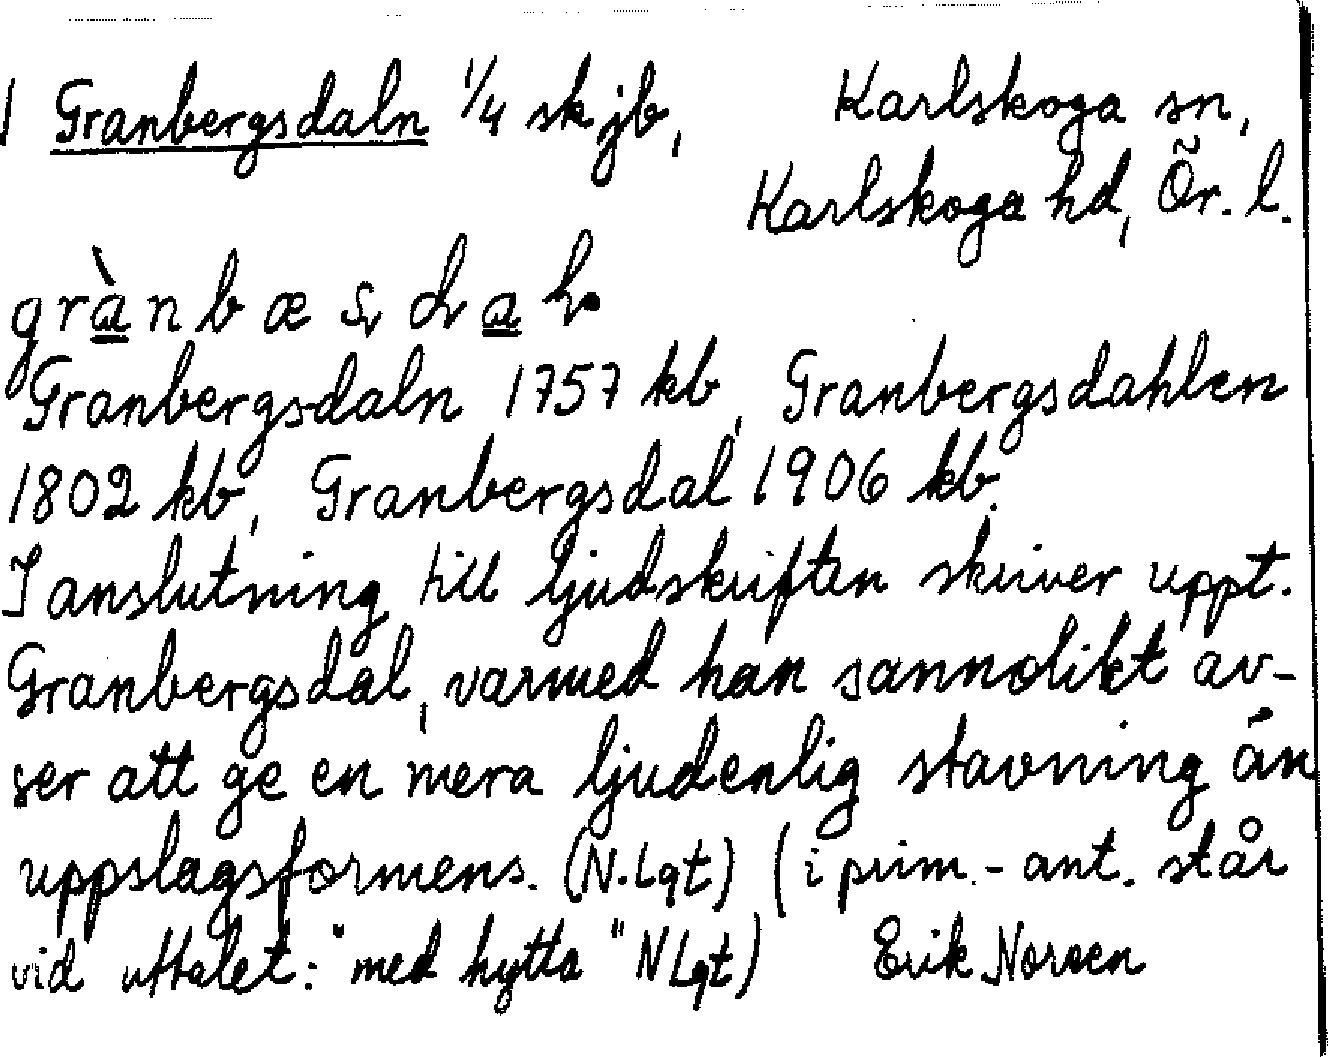 Granbergsdaln 1/4 skjb, Karlskoga sn,
Karlskoga hd, Ör. l.
grànbæsdal
Granbergsdaln 1757 kb, Granbergsdahlen
1802 kb, Granbergsdal 1906 kb.
I anslutning till ljudskriften skriver uppt.
Granbergsdal, varmed han sannolikt av-
ser att ge en mera ljudenlig stavning än
uppslagsformens. (N.Lgt) (i prim.-ant. står
vid uttalet: "med hytta" NLgt) Erik Noreen